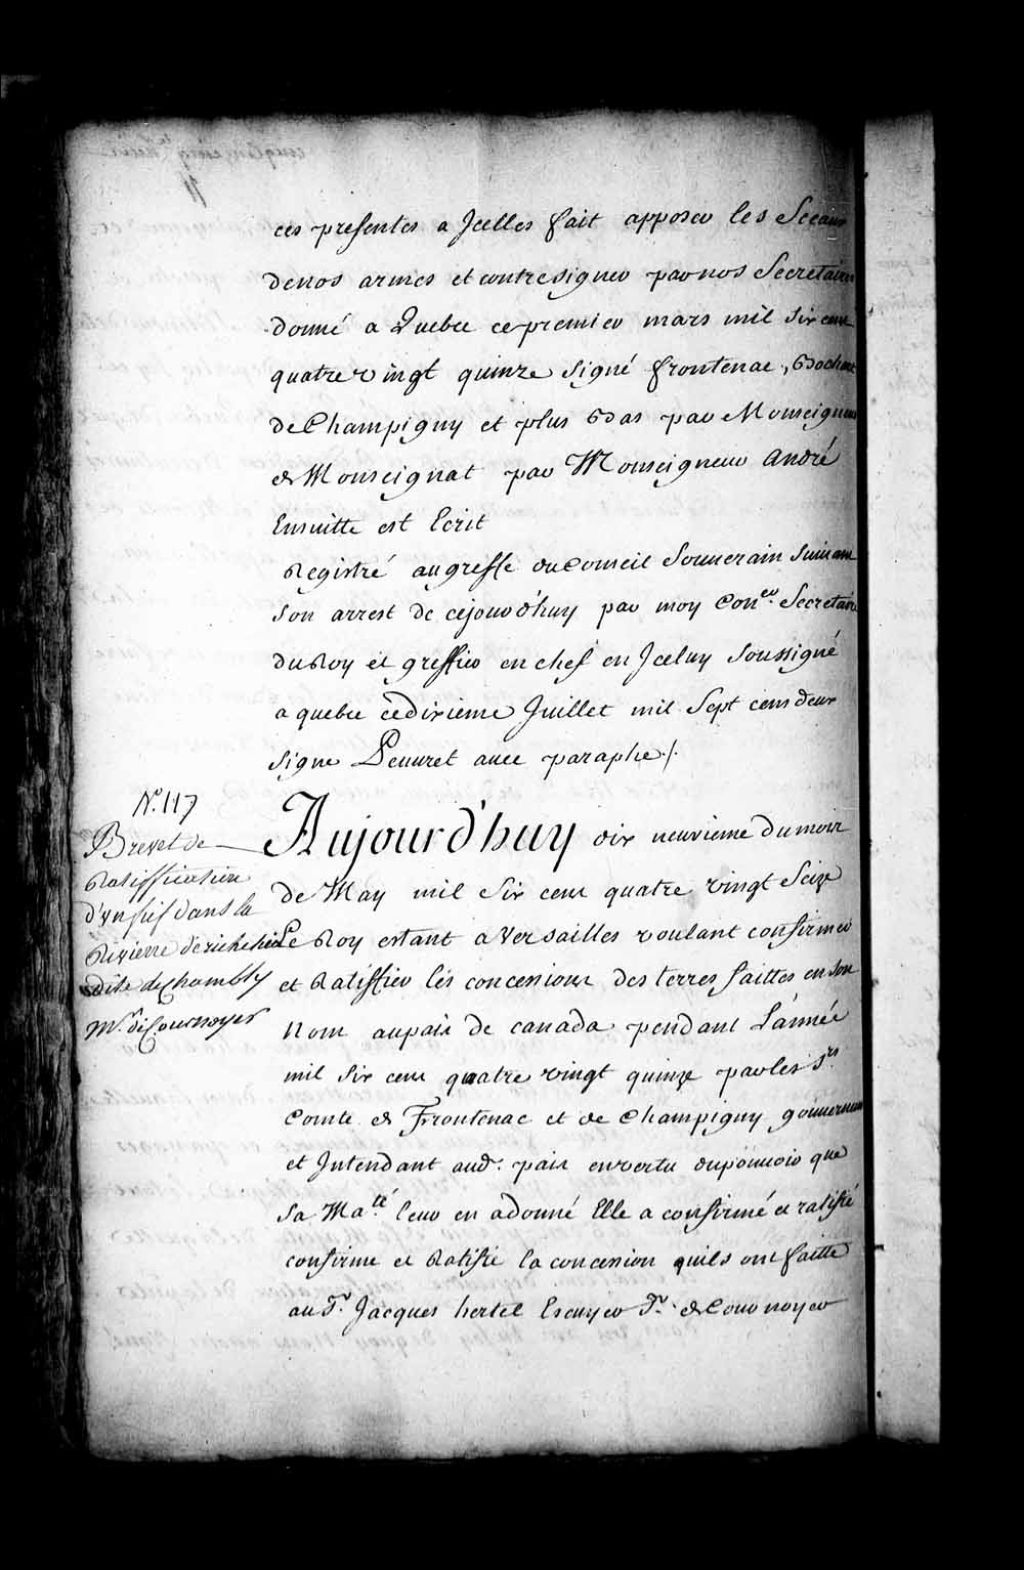 ces presentes a Jcelles fait apposer les Sceaux
denos armes et contresigner par nos Secretaires
donné a Quebec cepremier mars mil six cent
quatre vingt quinze signé frontenac, Bochart
de Champigny et plus Bas par Monseigneur
de Monseignat par Monseigneur André
Ensuitte est Ecrit
Registré augreffe du Conseil Souuerain Suiuant
son arrest de cejourd'huy par moy Con.er Secretaire
du Roy et greffier en chef en Jceluy soussigné
a quebec cedixieme Juillet mil Sept cens deux
signe Peuuret auec paraphe./.
N.º 117
Brevet de
Ratiffication
d'un fief dans la
Rivierre de richelieu
dite de Chambly
M.r de Cournoyer
Aujourd'huy dix neuvieme du mois
de May mil Six cens quatre vingt Seize
Le Roy estant a Versailles voulant confirmer
et Ratiffier les concessions des terres faittes en son
Nom aupais de canada pendant L'année
mil Six cens quatre vingt quinze par les S.rs
Comte de Frontenac et de Champigny gouuerneur
et Jntendant aud. pais envertu dupouuoir que
Sa Ma.té leur en adonné Elle a confirmé et ratifié
confirme et Ratifie la concession quils ont faitte
au S.r Jacques hertel Escuyer S.r de Cournoyer